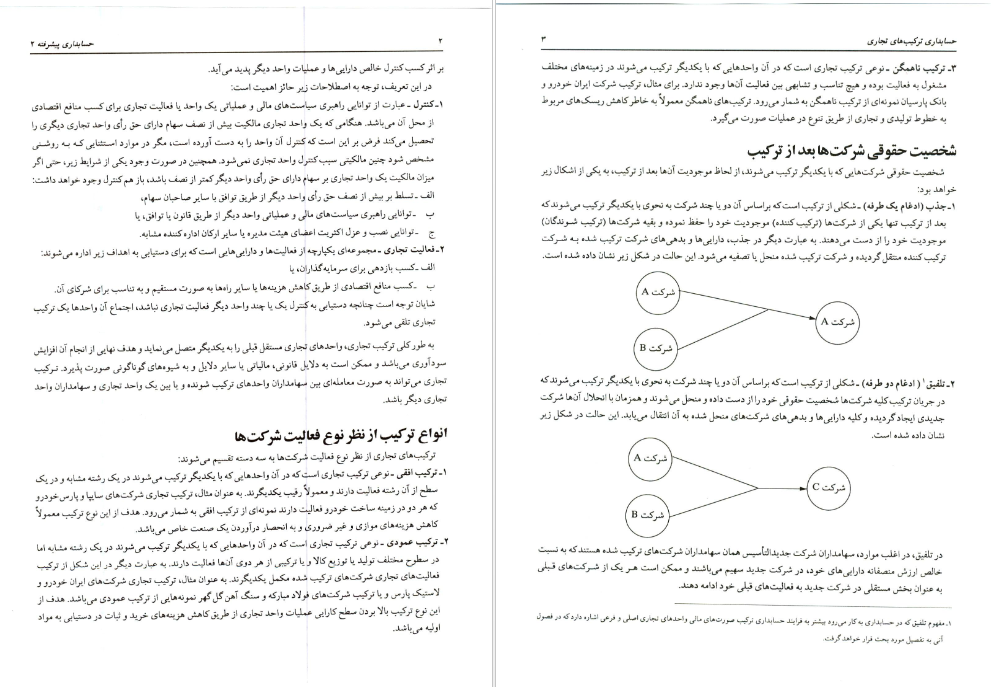 ۲
حسابداری پیشرفته ۲
بر اثر کسب کنترل خالص دارایی‌ها و عملیات واحد دیگر پدید می‌آید.
در این تعریف، توجه به اصطلاحات زیر حائز اهمیت است:
۱ـ کنترل ـ عبارت از توانایی راهبری سیاست‌های مالی و عملیاتی یک واحد یا فعالیت تجاری برای کسب منافع اقتصادی
از محل آن می‌باشد. هنگامی که یک واحد تجاری مالکیت بیش از نصف سهام دارای حق رأی واحد تجاری دیگری را
تحصیل می‌کند فرض بر این است که کنترل آن واحد را به دست آورده است، مگر در موارد استثنایی کـه بـه روشنی
مشخص شود چنین مالکیتی سبب کنترل واحد تجاری نمی‌شود. همچنین در صورت وجود یکی از شرایط زیر، حتی اگر
میزان مالکیت یک واحد تجاری بر سهام دارای حق رأی واحد دیگر کمتر از نصف باشد، باز هم کنترل وجود خواهد داشت:
الف ـ تسلط بر بیش از نصف حق رأی واحد دیگر از طریق توافق با سایر صاحبان سهام،
ب ـ توانایی راهبری سیاست‌های مالی و عملیاتی واحد دیگر از طریق قانون یا توافق، یا
ج ـ توانایی نصب و عزل اکثریت اعضای هیئت مدیره یا سایر ارکان اداره کننده مشابه.
۲ـ فعالیت تجاری ـ مجموعه‌ای یکپارچه از فعالیت‌ها و دارایی‌هایی است که برای دستیابی به اهداف زیر اداره می‌شوند:
الف ـ کسب بازدهی برای سرمایه‌گذاران، یا
ب ـ کسب منافع اقتصادی از طریق کاهش هزینه‌ها یا سایر راه‌ها به صورت مستقیم و به تناسب برای شرکای آن.
شایان توجه است چنانچه دستیابی به کنترل یک یا چند واحد دیگر فعالیت تجاری نباشد، اجتماع آن واحدها یک ترکیب
تجاری تلقی می‌شود.
به طور کلی ترکیب تجاری، واحدهای تجاری مستقل قبلی را به یکدیگر متصل می‌نماید و هدف نهایی از انجام آن افزایش
سودآوری می‌باشد و ممکن است به دلایل قانونی، مالیاتی یا سایر دلایل و به شیوه‌های گوناگونی صورت پذیرد. ترکیب
تجاری می‌تواند به صورت معامله‌ای بین سهامداران واحدهای ترکیب شونده و یا بین یک واحد تجاری و سهامداران واحد
تجاری دیگر باشد.
انواع ترکیب از نظر نوع فعالیت شرکت‌ها
ترکیب‌های تجاری از نظر نوع فعالیت شرکت‌ها به سه دسته تقسیم می‌شوند:
۱ـ ترکیب افقی ـ نوعی ترکیب تجاری است که در آن واحدهایی که با یکدیگر ترکیب می‌شوند در یک رشته مشابه و در یک
سطح از آن رشته فعالیت دارند و معمولاً رقیب یکدیگرند. به عنوان مثال، ترکیب تجاری شرکت‌های سایپا و پارس خودرو
که هر دو در زمینه ساخت خودرو فعالیت دارند نمونه‌ای از ترکیب افقی به شمار می‌رود. هدف از این نوع ترکیب معمولاً
کاهش هزینه‌های موازی و غیر ضروری و به انحصار درآوردن یک صنعت خاص می‌باشد.
۲ـ ترکیب عمودی ـ نوعی ترکیب تجاری است که در آن واحدهایی که با یکدیگر ترکیب می‌شوند در یک رشته مشابه اما
در سطوح مختلف تولید یا توزیع کالا و یا ترکیبی از هر دوی آن‌ها فعالیت دارند. به عبارت دیگر در این شکل از ترکیب
فعالیت‌های تجاری شرکت‌های ترکیب شده مکمل یکدیگرند. به عنوان مثال، ترکیب تجاری شرکت‌های ایران خودرو و
لاستیک پارس و یا ترکیب شرکت‌های فولاد مبارکه و سنگ آهن گل گهر نمونه‌هایی از ترکیب عمودی می‌باشد. هدف از
این نوع ترکیب بالا بردن سطح کارایی عملیات واحد تجاری از طریق کاهش هزینه‌های خرید و ثبات در دستیابی به مواد
اولیه می‌باشد.
حسابداری ترکیب‌های تجاری
۳
۳ـ ترکیب ناهمگن ـ نوعی ترکیب تجاری است که در آن واحدهایی که با یکدیگر ترکیب می‌شوند در زمینه‌های مختلف
مشغول به فعالیت بوده و هیچ تناسب و تشابهی بین فعالیت آن‌ها وجود ندارد. برای مثال، ترکیب شرکت ایران خودرو و
بانک پارسیان نمونه‌ای از ترکیب ناهمگن به شمار می‌رود. ترکیب‌های ناهمگن معمولاً به خاطر کاهش ریسک‌های مربوط
به خطوط تولیدی و تجاری از طریق تنوع در عملیات صورت می‌گیرد.
شخصیت حقوقی شرکت‌ها بعد از ترکیب
شخصیت حقوقی شرکت‌هایی که با یکدیگر ترکیب می‌شوند، از لحاظ موجودیت آن‌ها بعد از ترکیب، به یکی از اشکال زیر
خواهد بود:
۱ـ جذب (ادغام یک طرفه) ـ شکلی از ترکیب است که براساس آن دو یا چند شرکت به نحوی با یکدیگر ترکیب می‌شوند که
بعد از ترکیب تنها یکی از شرکت‌ها (ترکیب کننده) موجودیت خود را حفظ نموده و بقیه شرکت‌ها (ترکیب شوندگان)
موجودیت خود را از دست می‌دهند. به عبارت دیگر در جذب، دارایی‌ها و بدهی‌های شرکت ترکیب شده بـه شـرکت
ترکیب کننده منتقل گردیده و شرکت ترکیب شده منحل یا تصفیه می‌شود. این حالت در شکل زیر نشان داده شده است.
شرکت A
شرکت A
شرکت B
۲ـ تلفیق۱ (ادغام دو طرفه) ـ شکلی از ترکیب است که براساس آن دو یا چند شرکت به نحوی با یکدیگر ترکیب می‌شوند که
در جریان ترکیب کلیه شرکت‌ها شخصیت حقوقی خود را از دست داده و منحل می‌شوند و همزمان با انحلال آن‌ها شرکت
جدیدی ایجاد گردیده و کلیه دارایی‌ها و بدهی‌های شرکت‌های منحل شده به آن انتقال می‌یابد. این حالت در شکل زیر
نشان داده شده است.
شرکت A
شرکت C
شرکت B
در تلفیق، در اغلب موارد، سهامداران شرکت جدیدالتأسیس همان سهامداران شرکت‌های ترکیب شده هستند که به نسبت
خالص ارزش منصفانه دارایی‌های خود، در شرکت جدید سهیم می‌باشند و ممکن است هـر یک از شـرکت‌های قـبلی
به عنوان بخش مستقلی در شرکت جدید به فعالیت‌های قبلی خود ادامه دهند.
۱ـ مفهوم تلفیق که در حسابداری به کار می‌رود بیشتر به فرایند حسابداری ترکیب صورت‌های مالی واحدهای تجاری اصلی و فرعی اشاره دارد که در فصول
آتی به تفصیل مورد بحث قرار خواهد گرفت.